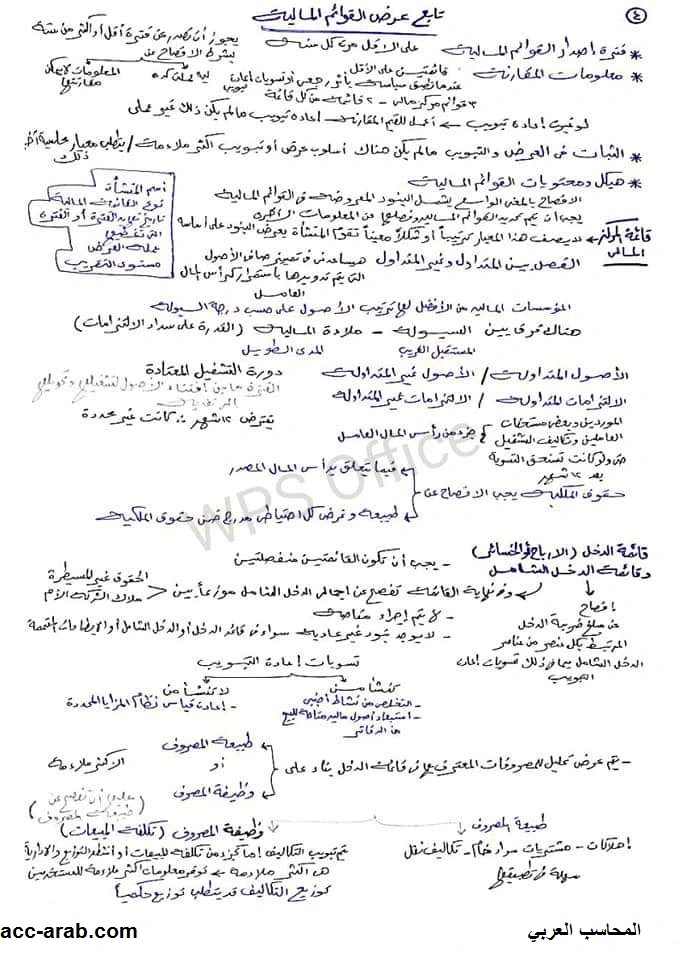 ٤
تابع عرض القوائم المالية
* فترة إصدار القوائم المالية على الأقل مرة كل سنة
يجوز أن تصدر عن فترة أقل أو أكثر من سنة
بشرط الإفصاح عن
* معلومات المقارنة قائمتين على الأقل
المعلومات لا يمكن مقارنتها
عند تطبيق سياسة بأثر رجعي أو تسويات إعادة تبويب
٣ قوائم مركز مالي - ٢ قائمة من كل قائمة
لو تمت إعادة تبويب ← أعمل للقيم المقارنة إعادة تبويب مالم يكن ذلك غير عملي
* الثبات في العرض والتبويب مالم يكن هناك أسلوب عرض أو تبويب أكثر ملاءمة / يتطلب معيار محاسبة آخر ذلك
* هيكل ومحتويات القوائم المالية
الإفصاح بالمعنى الواسع يشمل البنود المعروضة في القوائم المالية
يجب أن يتم تحديد القوائم المالية وفصلها عن المعلومات الأخرى
اسم المنشأة
نوع القائمة المالية
تاريخ نهاية الفترة أو الفترة التي تغطيها
عملة العرض
مستوى التقريب
قائمة المركز المالي
لا يصف هذا المعيار ترتيباً أو شكلاً معيناً تقوم المنشأة بعرض البنود على أساسه
الفصل بين المتداول وغير المتداول هيساعدني في تمييز صافي الأصول
التي يتم تدويرها باستمرار كرأس المال العامل
المؤسسات المالية من الأفضل لها ترتيب الأصول على حسب درجة السيولة
هناك فرق بين السيولة - ملاءة المالية (القدرة على سداد الالتزامات)
المستقبل القريب
المدى الطويل
الأصول المتداولة / الأصول غير المتداولة
الالتزامات المتداولة / الالتزامات غير المتداولة
دورة التشغيل المعتادة
الفترة ما بين اقتناء الأصول لتشغيلها وتحويلها إلى نقدية
يفترض ١٢ شهر كانت غير محددة
الموردين وبعض مستحقات العاملين وتكاليف التشغيل
جزء من رأس المال العامل
حتى ولو كانت تستحق التسوية بعد ١٢ شهر
حقوق الملكية يجب الإفصاح عن
فيما يتعلق برأس المال المصدر
طبيعة وغرض كل احتياطي مدرج ضمن حقوق الملكية
قائمة الدخل (الأرباح أو الخسائر)
وقائمة الدخل الشامل
- يجب أن تكون القائمتين منفصلتين
وفي نهاية القائمة تفصح عن إجمالي الدخل الشامل موزعاً بين
الحقوق غير المسيطرة
ملاك الشركة الأم
إفصاح
عن مبلغ ضريبة الدخل
المرتبط بكل عنصر من عناصر
الدخل الشامل بما في ذلك تسويات إعادة التبويب
- لا يتم إجراء مقاصة
- لا يوجد بنود غير عادية سواء في قائمة الدخل أو الدخل الشامل أو الإيضاحات المتممة
تسويات إعادة التبويب
تنشأ من
- التخلص من نشاط أجنبي
- استبعاد أصول مالية متاحة للبيع من الدفاتر
لا تنشأ من
- إعادة قياس نظام المزايا المحددة
- يتم عرض تحليل للمصروفات المعترف بها في قائمة الدخل بناء على
طبيعة المصروف
أو
وظيفة المصروف
الأكثر ملاءمة
طبيعة المصروف
إهلاكات - مشتريات مواد خام - تكاليف نقل
سهلة في تطبيقها
وظيفة المصروف (تكلفة المبيعات)
تم تبويب التكاليف إما كجزء من تكلفة المبيعات أو أنشطة التوزيع والإدارية
هي الأكثر ملاءمة ← توفر معلومات أكثر ملاءمة للمستخدمين
توزيع التكاليف قد يتطلب توزيع حكمياً
WPS Office
acc-arab.com
المحاسب العربي